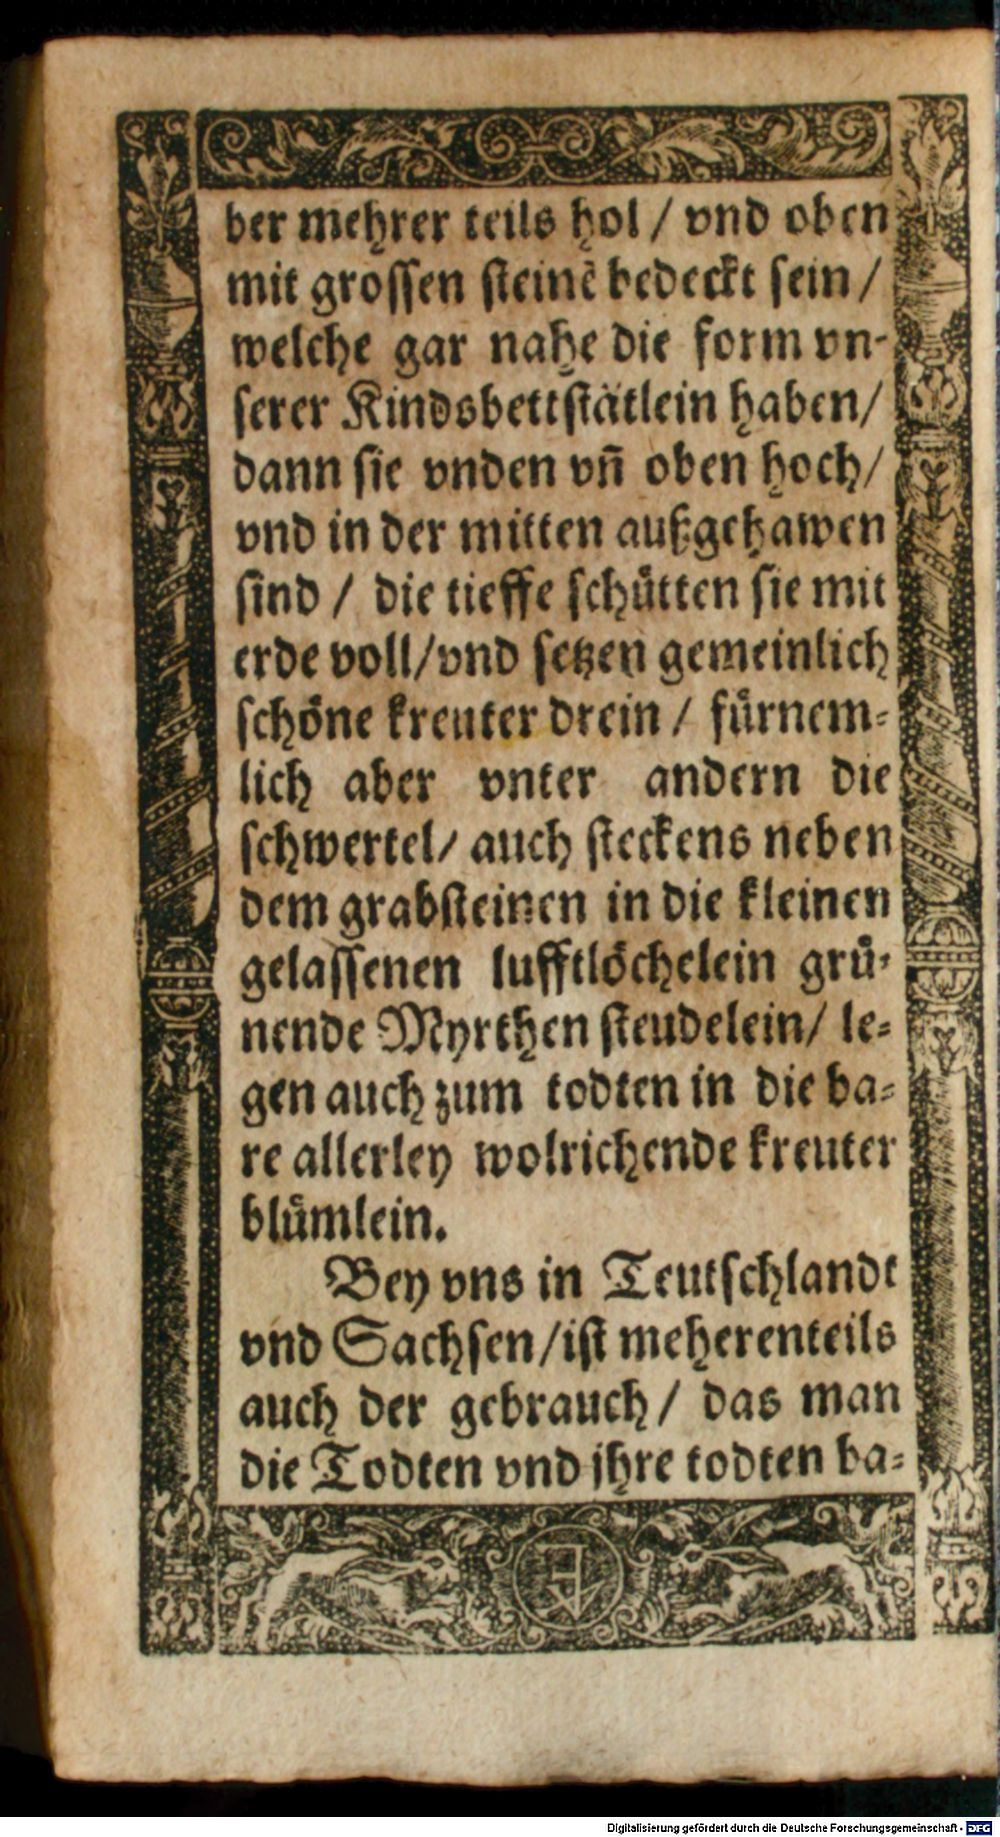 ber mehrer teils hol / vnd oben
mit grossen steinē bedeckt sein /
welche gar nahe die form vn-
serer Kindsbettstätlein haben /
dann sie vnden vñ oben hoch /
vnd in der mitten außgehawen
sind / die tieffe schuͤtten sie mit
erde voll / vnd setzen gemeinlich
schoͤne kreuter drein / fuͤrnem-
lich aber vnter andern die
schwertel / auch steckens neben
dem grabsteinen in die kleinen
gelassenen lufftloͤchelein gruͤ-
nende Myrthen steudelein / le-
gen auch zum todten in die ba-
re allerley wolrichende kreuter
bluͤmlein.
Bey vns in Teutschlandt
vnd Sachsen / ist meherenteils
auch der gebrauch / das man
die Todten vnd jhre todten ba-
Digitalisierung gefördert durch die Deutsche Forschungsgemeinschaft - DFG